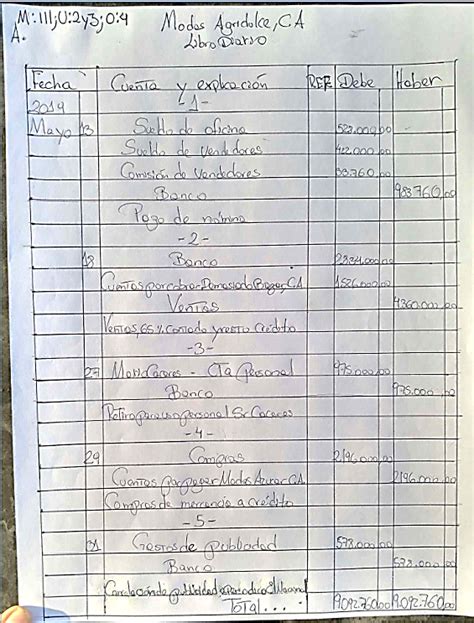 M: III, U: 2y3; O: 4
A.
Modas Agridolce, CA
Libro Diario
Fecha Cuenta y explicación REF Debe Haber
2019 -1-
Mayo 13 Sueldo de oficina
Sueldo de vendedores 422.000,00
Comisión de Vendedores
Banco 983.760,00
Pago de nómina
-2-
18 Banco 2.834.000,00
Cuentas por cobrar 1.526.000,00
Ventas 4.360.000,00
Ventas, 65% Contado y resto Crédito
-3-
27 - Cta Personal 975.000,00
Banco 975.000,00
Retiro para uso personal Sr Caceres
-4-
29 Compras 2.196.000,00
Cuentas por pagar Modas Azucar CA 2.196.000,00
Compras de mercancia a crédito
-5-
31 Gastos de publicidad 578.000,00
Banco 578.000,00
Cancelación de publicidad
Total.... 9.092.760,00 9.092.760,00